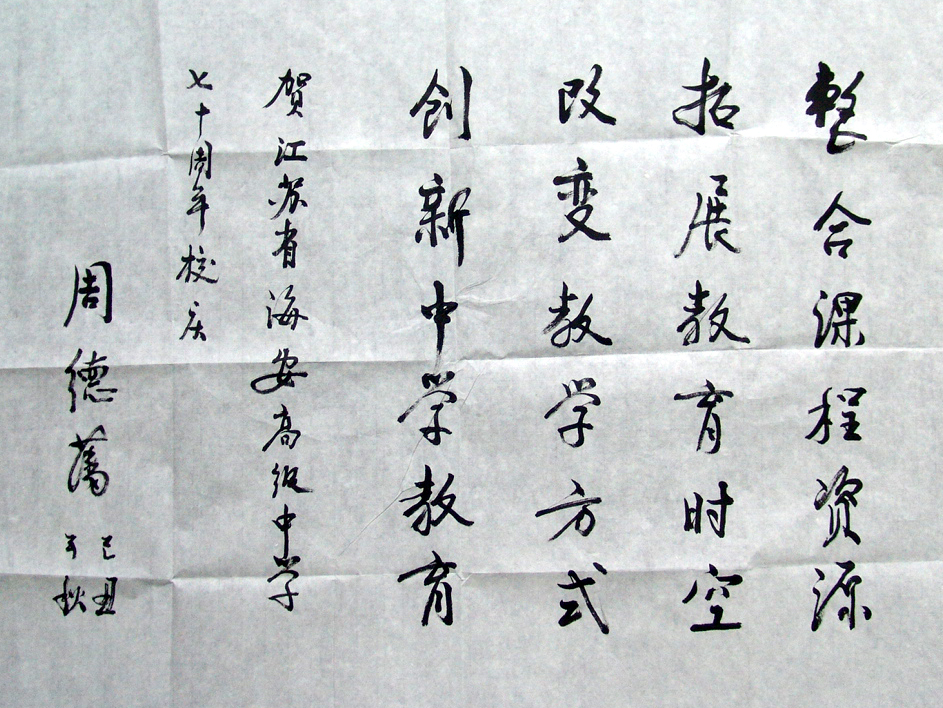 整合课程资源
拓展教育时空
改变教学方式
创新中学教育
贺江苏省海安高级中学
七十周年校庆
周德藩
己丑
秋